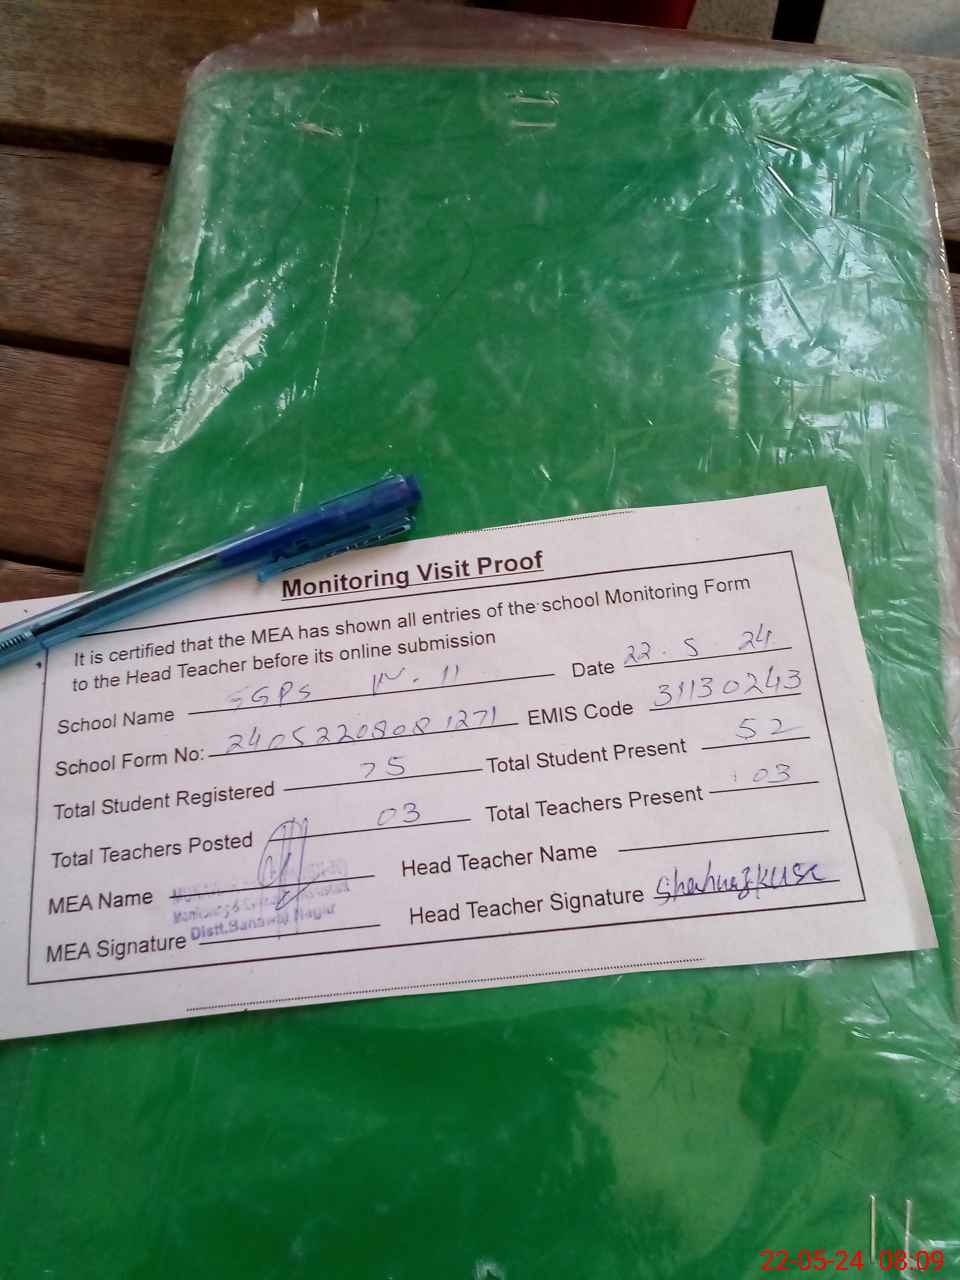 Monitoring Visit Proof
It is certified that the MEA has shown all entries of the school Monitoring Form
to the Head Teacher before its online submission
School Name GGPS Date 22.5.24
School Form No: 24052208081271 EMIS Code 31130243
Total Student Registered 75 Total Student Present 52
Total Teachers Posted 03 Total Teachers Present 03
MEA Name Head Teacher Name
MEA Signature Distt. Bahawal Nagar Head Teacher Signature
22-05-24 08:09